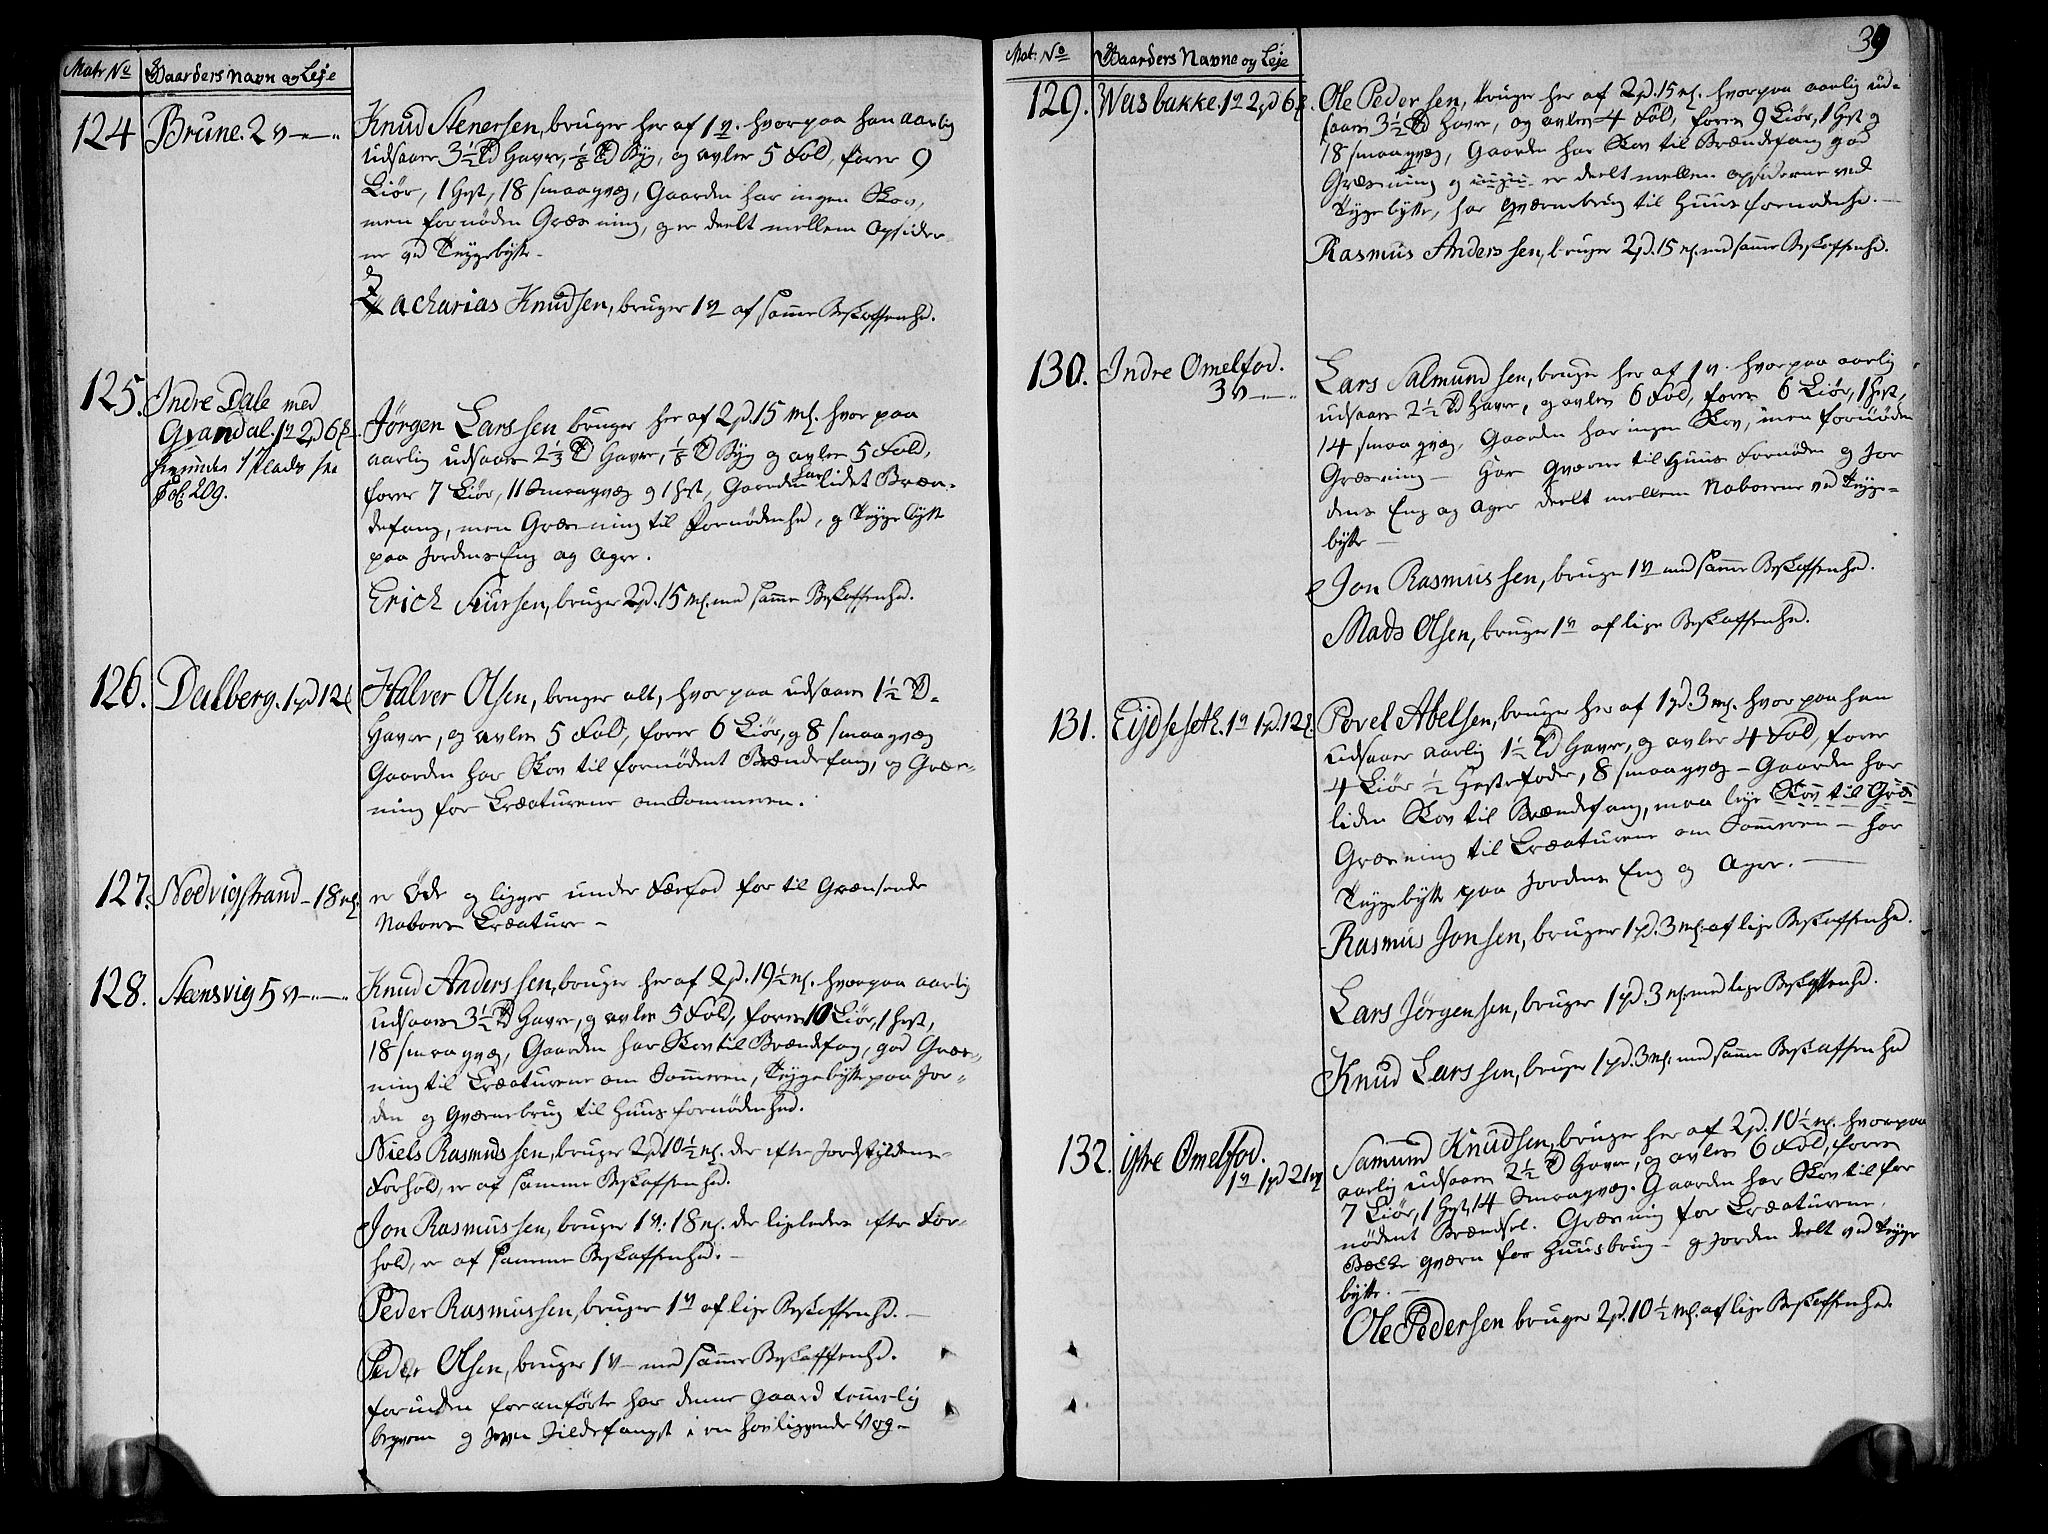 Matr No Gaarders Navn og Leje
124 Brune. 2 v — „ — „
Knud Stenersen, bruger her af 1 v. hvorpaa han aarlig
udsaaer 3½ Td Havre, ⅛ Td Byg, og avler 5 Fold, føder 9
Kiør, 1 Hest, 18 smaaqvæg, Gaarden har ingen Skov,
men fornøden Græsning, og er deelt mellem Opsider-
ne ved Teigebytte.
Zacharias Knudsen, bruger 1 v af samme Beskaffenhd.
125. Indre Dale med
Qvandal. 1 v 2 pd 6 ℔.
herunder 1 Plads see
Fol: 209.
Jørgen Larssen bruger her af 2 pd. 15 mk. hvorpaa
aarlig udsaaer 2⅓ Td Havre, ⅛ Td Byg og avler 5 Fold,
føder 7 Kiør, 11 Smaaqvæg og 1 Hest, Gaarden har lidet Bræn-
defang, men Græsning til Fornødenhed, og Teigebytte
paa Jordens Eng og Ager.
Erich Siursen, bruger 2 pd. 15 mk. med samme Beskaffenhd.
126. Dalberg. 1 pd 12 ℔
Halver Olsen, bruger alt, hvorpaa udsaaes 1½ Td.
Havre, og avler 5 Fold, føder 6 Kiør, og 8 smaaqvæg
Gaarden har Skov til fornødent Brændefang, og Græs-
ning for Creaturene om Sommeren.
127. Nedvigstrand — 18 mk.
er Øde og ligger under Færfod for til Grænsende
Naboers Creature —
128. Steensvig 5 v — „ — „
Knud Anderssen, bruger her af 2 pd. 19½ mk. hvorpaa aarlig
udsaaes 3½ Td Havre, og avler 5 Fold, føder 10 Kiør, 1 Hest,
18 smaaqvæg, Gaarden har Skov til Brændefang, god Græs-
ning til Creaturene om Sommeren, Teigebytte paa Jor-
den og Qværnebrug til Huus fornødenhed.
Niels Rasmussen, bruger 2 pd 10½ mk. der efter Jordskyldens
Forhold, er af samme Beskaffenhed.
Jon Rasmussen, bruger 1 v: 18 mk. der ligeledes efter For-
hold, er af samme Beskaffenhed. —
Peder Rasmussen, bruger 1 v af lige Beskaffenhd. —
Peder Olsen, bruger 1 v — med samme Beskaffenhd.
foruden foranførte har denne gaard temmelig
beqvem og jevn Sildefangst i en hosliggende Vaag —
39
Matr: No Gaarders Navne og Leje
129. Wasbakke. 1 v 2 pd 6 ℔.
Ole Pedersen, bruger her af 2 pd. 15 mk. hvorpaa aarlig ud-
saaes 3½ Td Havre, og avler 4 Fold, føder 9 Kiør, 1 Hest og
18 smaaqvæg, Gaarden har Skov til Brændefang god
Græsning og er deelt mellem opsiderne ved
Teigebytte, har Qværnebrug til Huus fornødenhd. —
Rasmus Anderssen, bruger 2 pd. 15 mk. med samme Beskaffenhd.
130. Indre Omelfod.
3 v — „ — „
Lars Salmundsen, bruger her af 1 v. hvorpaa aarlig
udsaaer 2½ Td Havre, og avler 6 Fold, føder 6 Kiør, 1 Hest,
14 smaaqvæg, Gaarden har ingen Skov, men fornøden
Græsning — Har Qværne til Huus Fornøden og Jor
dens Eng og Ager deelt mellem Naboerne ved Teige-
bytte —
Jon Rasmussen, bruger 1 v med samme Beskaffenhd.
Mads Olsen, bruger 1 v af lige Beskaffenhd.
131. Eijdseseth. 1 v 1 pd. 12 ℔.
Povel Abelsen, bruger her af 1 pd 3 mk. hvorpaa han
udsaaer aarlig 1½ Td Havre, og avler 4 Fold, føder
4 Kiør ½ Hestefoder, 8 smaaqvæg — Gaarden har
liden Skov til Brændefang, maa leje Skov til Græs
Græsning til Creaturene om Sommeren — har
Teigebytte paa Jordens Eng og Ager. —
Rasmus Jonsen, bruger 1 pd. 3 mk. af lige Beskaffenhd.
Lars Jørgensen, bruger 1 pd. 3 mk. med lige Beskaffenhd.
Knud Larssen, bruger 1 pd. 3 mk. med samme Beskaffenhed
132. ijtre Omelfod.
1 v 1 pd 21 mk
Samund Knudsen, bruger her af 2 pd. 10½ mk. hvorpaa
aarlig udsaaes 2½ Td Havre, og avler 6 Fold, føder
7 Kiør, 1 Hest, 14 Smaaqvæg. Gaarden har Skov til for
nødent Brændsel. Græsning for Creaturene,
Bekke qværn for Huusbrug — og Jorden deelt ved Teige
bytte. —
Ole Pedersen bruger 2 pd. 10½ mk. af lige Beskaffenhed.